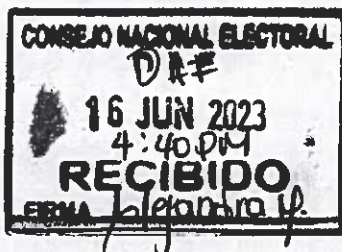 CONSEJO NACIONAL ELECTORAL
DAF
16 JUN 2023
4:40 PM
RECIBIDO
FIRMA Alejandra Y.